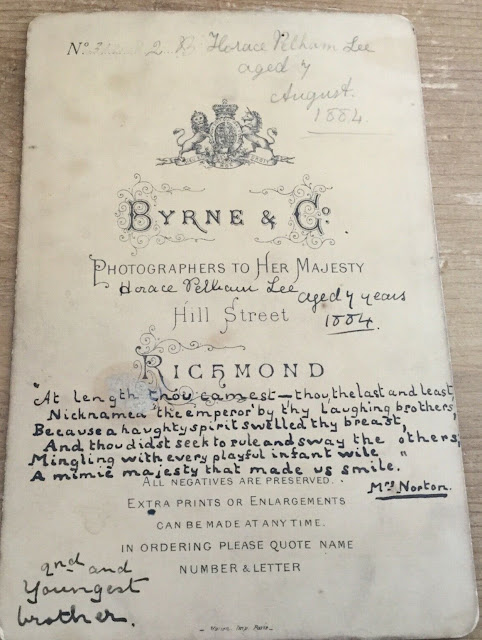 Nº 2 Horace Pelham Lee
aged 7
August.
1884.
BYRNE & Cº.
PHOTOGRAPHERS TO HER MAJESTY
Horace Pelham Lee aged 7 years
1884.
Hill Street
RICHMOND
"At length thou camest — thou, the last and least,
Nicknamed 'the emperor' by thy laughing brothers,
Because a haughty spirit swelled thy breast,
And thou didst seek to rule and sway the others;
Mingling with every playful infant wile
A mimic majesty that made us smile."
Mrs Norton.
ALL NEGATIVES ARE PRESERVED.
EXTRA PRINTS OR ENLARGEMENTS
CAN BE MADE AT ANY TIME.
IN ORDERING PLEASE QUOTE NAME
NUMBER & LETTER
2nd and
Youngest
brother.